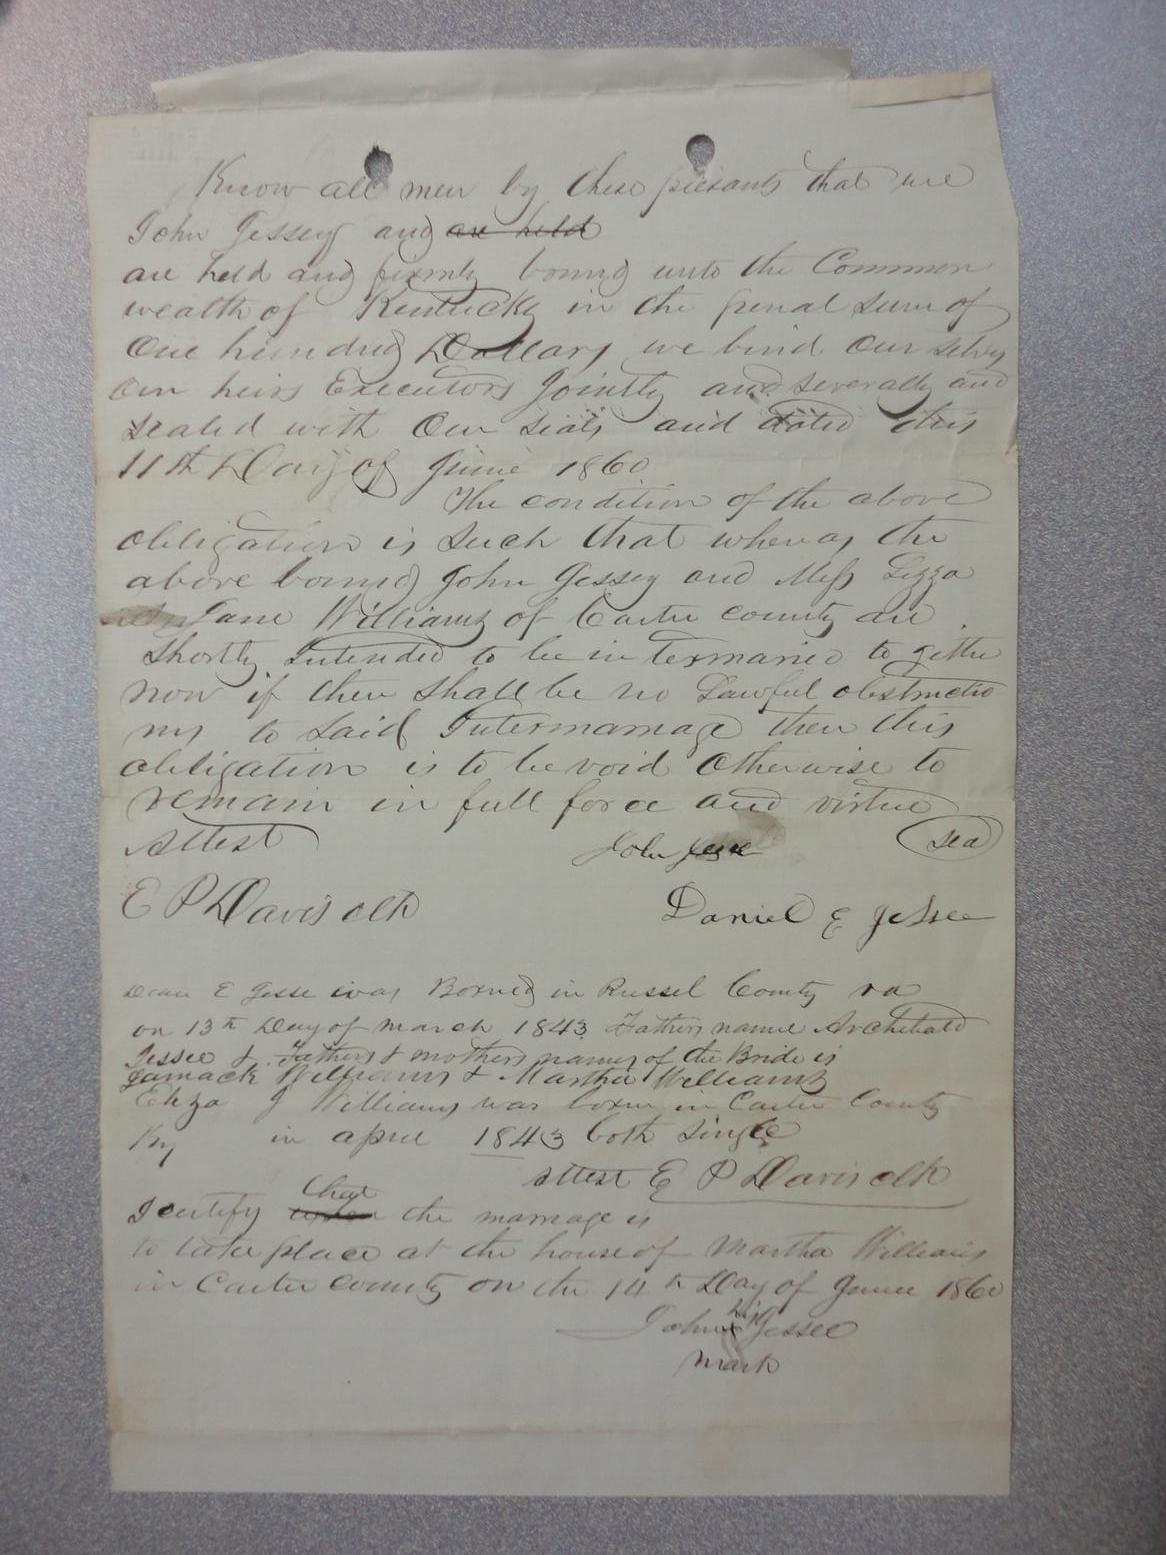 Know all men by these presants that we
John Jessey and are held
are held and firmly bound unto the Common
wealth of Kentucky in the penal sum of
One hundred Dollars we bind our selvs
our heirs Executors Jointly and severally and
sealed with our seals and dated this
11th Day of June 1860
The condition of the above
obligation is such that whereas the
above bound John Jessey and Miss Lizza
Jane Williams of Carter county are
shortly Intended to be in termaried to gether
now if there shall be no Lawful obstructio
ns to said Intermarrage then this
obligation is to be void otherwise to
remain in full force and virtue
Attest John Jesse seal
E P Davis clk Daniel E Jessee
E Jesse was Borned in Russel County va
on 13th Day of march 1843 Fathers name Archibald
Jessee & Fathers & mothers names of the Bride is
Williams & Martha Williams
Eliza J Williams was born in Carter County
Ky in april 1843 both single
Attest E P Davis clk
I certify that the marrage is
to take place at the house of Martha Williams
in Carter county on the 14th Day of June 1860
John his x Jessee
mark